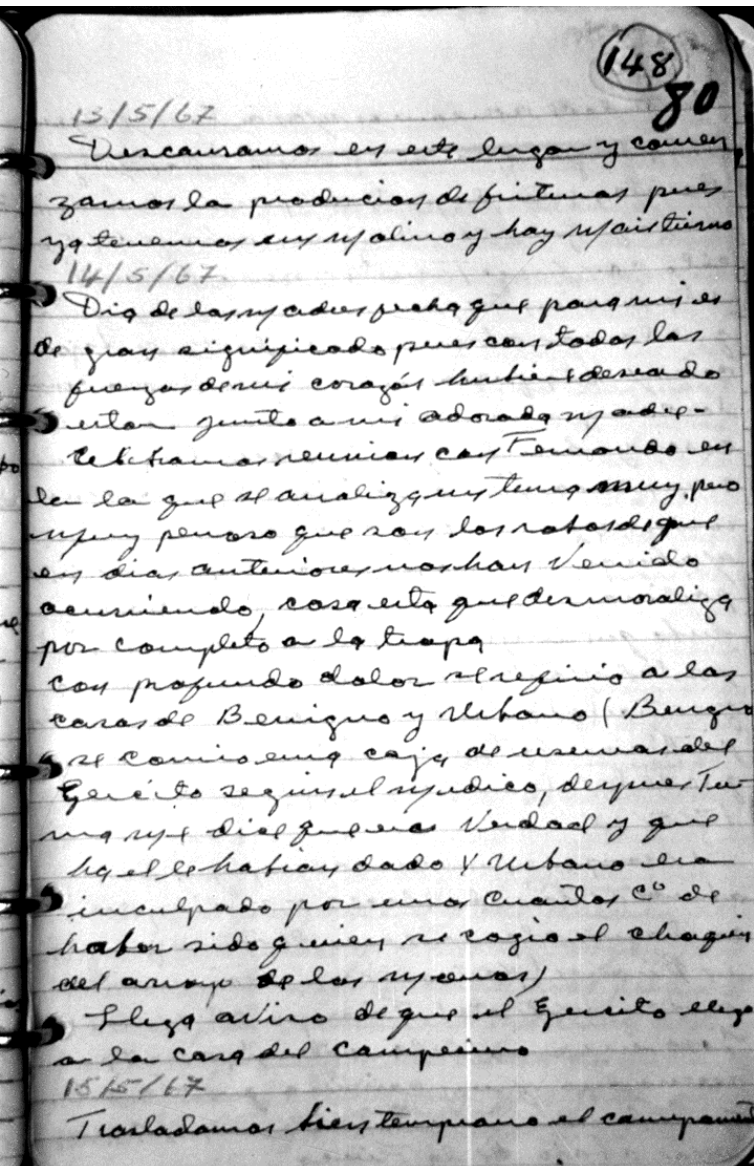 148
80
13/5/67
Descansamos en este lugar y comen
zamos la producion de frituras pues
ya tenemos un molino y hay mais tierno
14/5/67
Dia de las madres fecha que para mi es
de gran significado pues con todas las
fuerzas de mi corazón hubiese deseado
estar junto a mi adorada madre-
Celebramos reunion con Fernando en
la que se analiza un tema muy, pero
muy penoso que son los robos de que
en dias anteriores nos han venido
ocurriendo, cosa esta que desmoraliza
por completo a la tropa
con profundo dolor se refirio a los
casos de Benigno y Urbano (Benigno
se comio una caja de reservas del
Ejercito segun el medico, despues Tu-
ma me dice que era verdad y que
ha el le habian dado y Urbano era
inculpado por unos cuantos Co de
haber sido quien se cogio el chaqui
del arroyo de los monos)
Llega aviso de que el Ejercito llego
a la casa del campesino
15/5/67
Trasladamos bien temprano el campament